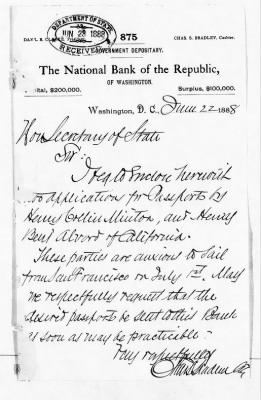 DEPARTMENT OF STATE
JUN 23 1888
RECEIVED
875
CHAS. S. BRADLEY, Cashier.
GOVERNMENT DEPOSITARY.
The National Bank of the Republic,
OF WASHINGTON.
ital, $200,000. Surplus, $100,000.
Washington, D. C. June 22 1888
Hon Secretary of State
Sir:
I beg to Enclose herewith
application for Passports by
Henry Minton, and Henry
Benj Alvord of California.
These parties are anxious to Sail
from San Francisco on July 1st. May
we respectfully request that the
desired passports be sent to this Bank
as soon as may be practicable -
Very respectfully